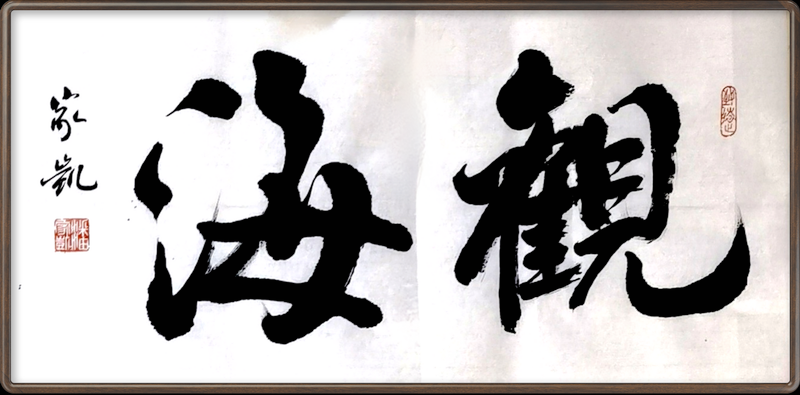 觀海
家凱